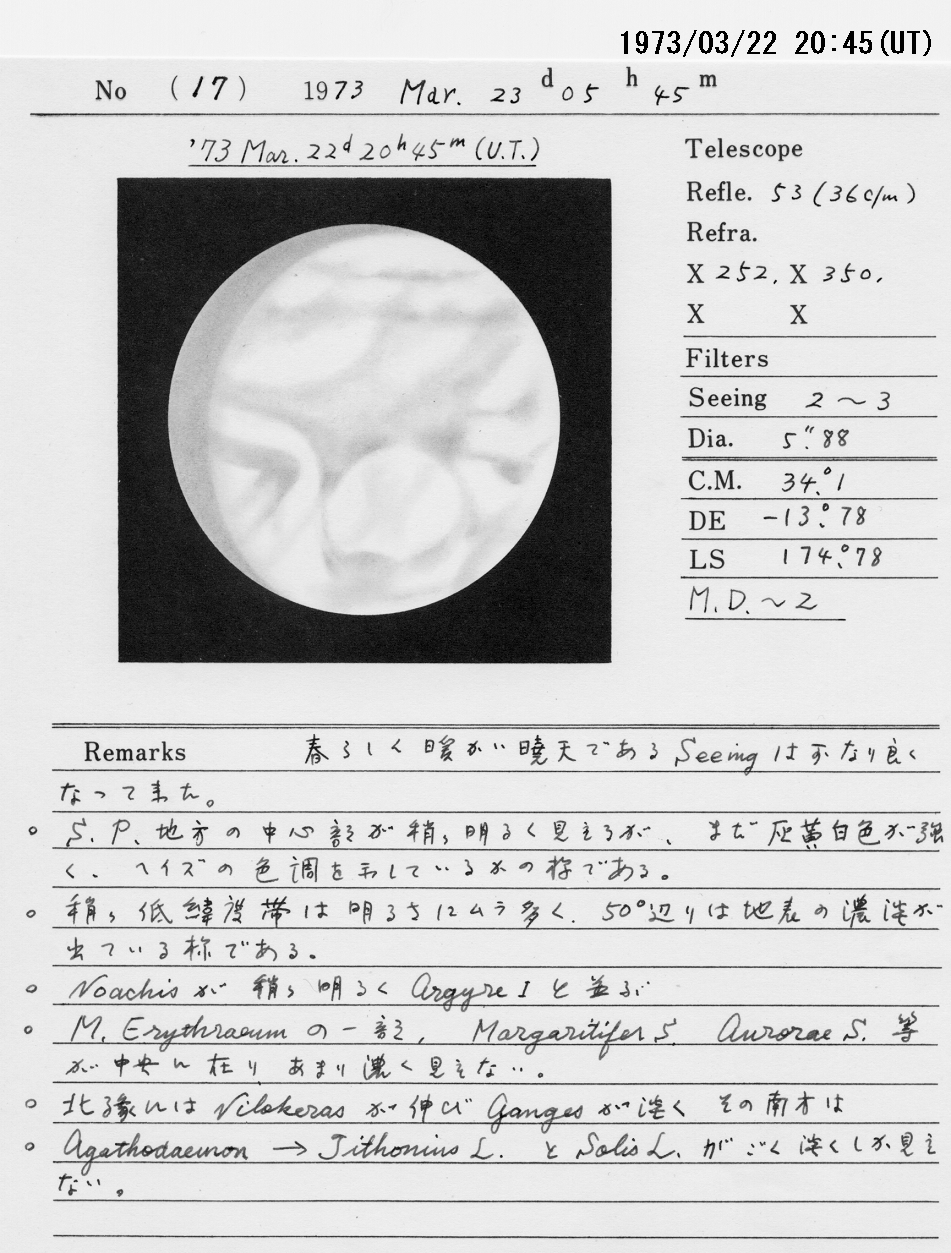 1973/03/22 20:45(UT)
No (17) 1973 Mar. 23 d 05 h 45 m
'73 Mar. 22d 20h 45m (U.T.)
Telescope
Refle. 53 (36c/m)
Refra.
X 252, X 350,
X X
Filters
Seeing 2 ~ 3
Dia. 5".88
C.M. 34.°1
DE -13.°78
LS 174.°78
M.D. ~ 2
Remarks 春らしく暖かい暁天である Seeing はかなり良く
なって来た。
○ S.P.地方の中心部が稍々明るく見えるが、まだ灰黄白色が強
く、ヘイズの色調を示しているかの様である。
○ 稍々低緯度帯は明るさにムラ多く、50°辺りは地表の濃淡が
出ている様である。
○ Noachis が稍々明るく Argyre I と並ぶ
○ M. Erythraeum の一部, Margaritifer S. Aurorae S. 等
が中央に在り あまり濃く見えない。
○ 北縁には Nilokeras が伸び Ganges が淡く その南方は
○ Agathodaemon → Tithonius L. と Solis L. がごく淡くしか見え
ない。